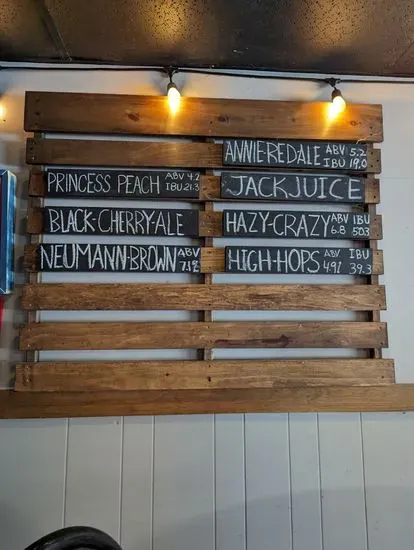 PRINCESS PEACH ABV 4.2 IBU 21.3
BLACK-CHERRY-ALE
NEUMANN-BROWN ABV
ANNIE-REDALE ABV 5.2 IBU 19.0
JACKJUICE
HAZY-CRAZY ABV 6.8 IBU 50.3
HIGH-HOPS ABV IBU 39.3